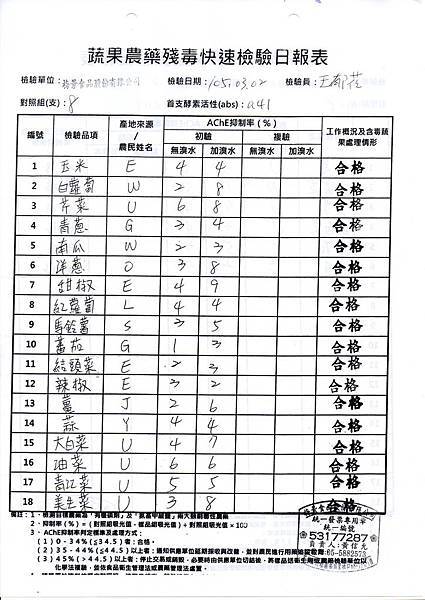 蔬果農藥殘毒快速檢驗日報表
檢驗單位: 食品股份有限公司 檢驗日期: 105.03.02 檢驗員: 王
對照組(支): 8 首支酵素活性(abs): 0.41
編號 檢驗品項 產地來源/農民姓名 AChE抑制率(%) 工作概況及含毒蔬果處理情形
初驗 複驗
無溴水 加溴水 無溴水 加溴水
1 玉米 E 4 4 合格
2 白蘿蔔 W 2 8 合格
3 芹菜 U 6 8 合格
4 青蔥 G 3 4 合格
5 南瓜 W 2 3 合格
6 洋蔥 O 3 8 合格
7 甜椒 E 4 9 合格
8 紅蘿蔔 L 4 4 合格
9 馬鈴薯 S 3 5 合格
10 蕃茄 G 1 3 合格
11 結頭菜 E 2 3 合格
12 辣椒 E 3 2 合格
13 薑 J 2 6 合格
14 蒜 Y 4 4 合格
15 大白菜 U 4 7 合格
16 油菜 U 6 6 合格
17 青江菜 U 5 5 合格
18 美生菜 U 3 8 合格
備註:1、檢測目標農藥為「有機磷劑」及「氨基甲酸鹽」兩大類劇毒性農藥
2、抑制率(%)=(對照組吸光值-樣品組吸光值)÷對照組吸光值×100
3、AChE抑制率判定標準及處理方式:
(1) 0-34%(≦34.5)者:合格。
(2) 35-44%(≦44.5)以上者:通知供應單位延期採收與改善,並對農民進行用藥追蹤教育
(3) 45%(>44.5)以上者:停止交易或銷毀,必要時由供應單位切結後,將樣品送衛生局或供應檢驗單位以
化學法複驗,並依食品衛生管理法或農藥管理法處置。
統一發票專用章
統一編號
53177287
負責人:黃信允
05-5882573